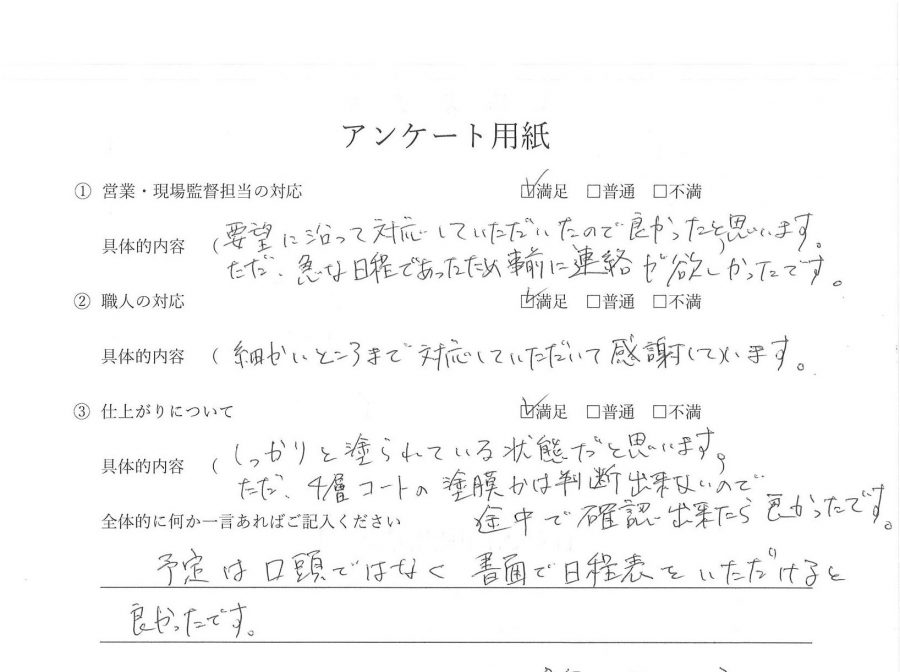 アンケート用紙
① 営業・現場監督担当の対応 ☑満足 □普通 □不満
具体的内容 (要望に沿って対応していただいたので良かったと思います。
ただ、急な日程であったため事前に連絡が欲しかったです。
② 職人の対応 ☑満足 □普通 □不満
具体的内容 (細かいところまで対応していただいて感謝しています。
③ 仕上がりについて ☑満足 □普通 □不満
具体的内容 (しっかりと塗られている状態だと思います。
ただ、4層コートの塗膜かは判断出来ないので
途中で確認出来たら良かったです。
全体的に何か一言あればご記入ください
予定は口頭ではなく書面で日程表をいただけると
良かったです。